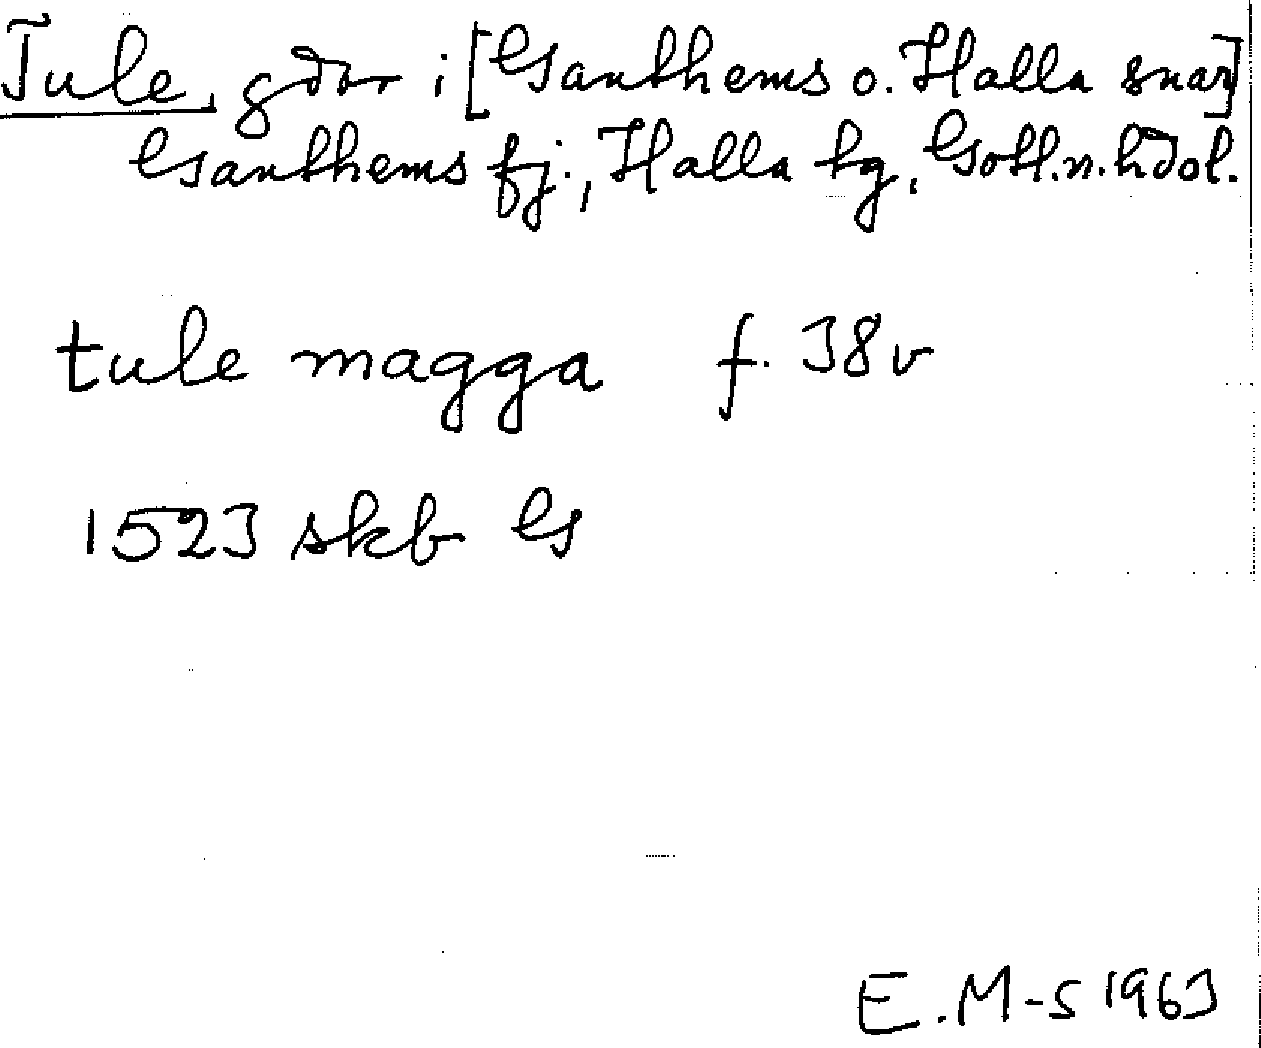 Tule, gdr i [Ganthems o. Halla snar]
Ganthems fj., Halla hg, Gotl.n.hdol.
tule magga f. 38v
1523 skb G
E.M-S 1963